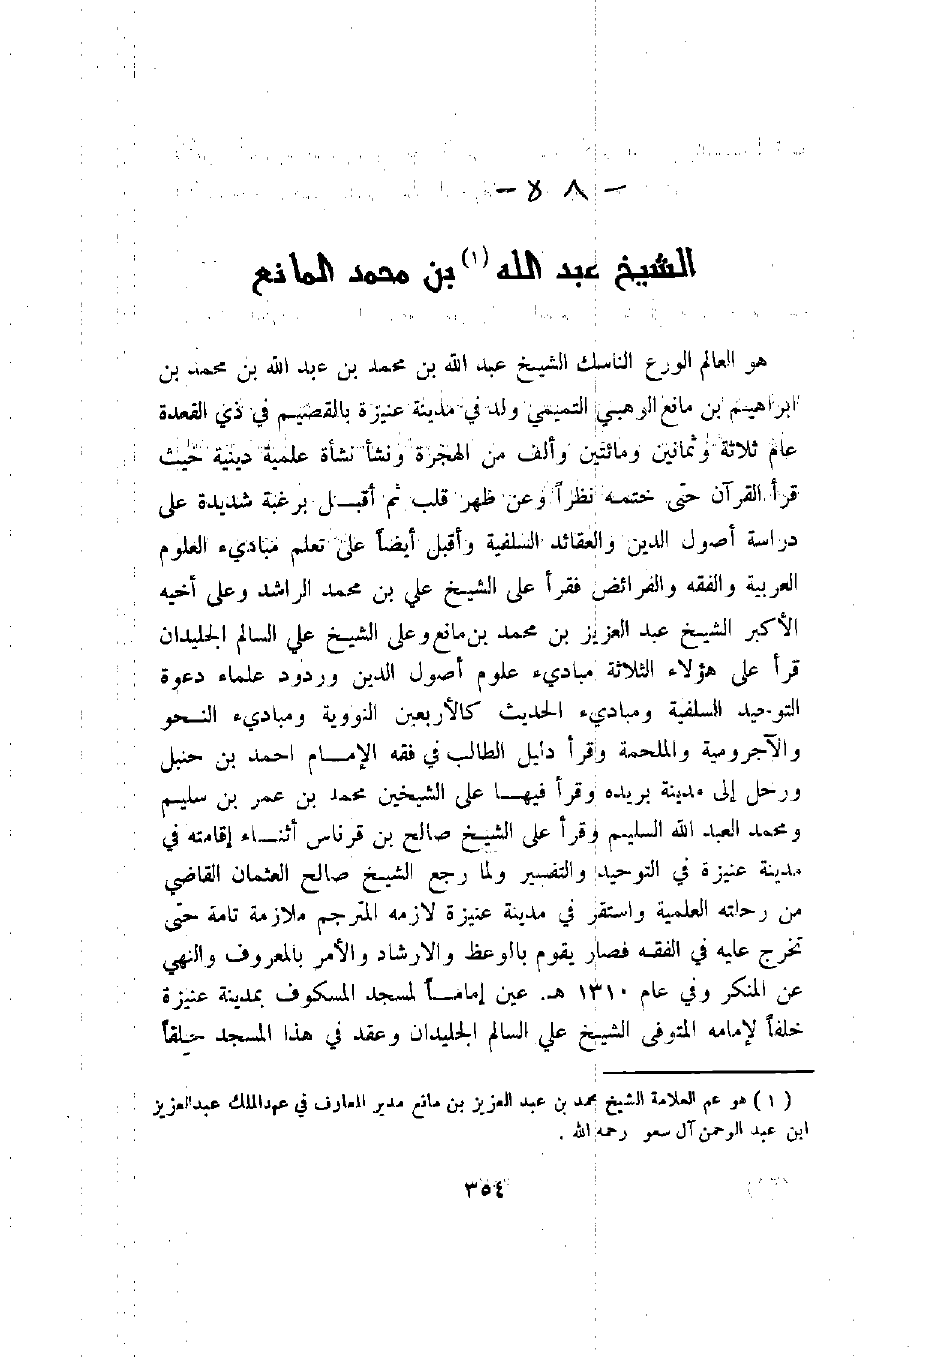 - ٨٥ -
الشيخ عبد الله (١) بن محمد المانع
هو العالم الورع الناسك الشيخ عبد الله بن محمد بن عبد الله بن محمد بن
ابراهيم بن مانع الوهبي التميمي ولد في مدينة عنيزة بالقصيم في ذي القعدة
عام ثلاثة وثمانين ومائتين وألف من الهجرة ونشأ نشأة علمية دينية حيث
قرأ القرآن حتى ختمه نظراً وعن ظهر قلب ثم أقبل برغبة شديدة على
دراسة أصول الدين والعقائد السلفية وأقبل أيضاً على تعلم مباديء العلوم
العربية والفقه والفرائض فقرأ على الشيخ علي بن محمد الراشد وعلى أخيه
الأكبر الشيخ عبد العزيز بن محمد بن مانع وعلى الشيخ علي السالم الجليدان
قرأ على هؤلاء الثلاثة مباديء علوم أصول الدين وردود علماء دعوة
التوحيد السلفية ومباديء الحديث كالأربعين النووية ومباديء النحو
والآجرومية والملحمة وقرأ دليل الطالب في فقه الإمام احمد بن حنبل
ورحل إلى مدينة بريده وقرأ فيها على الشيخين محمد بن عمر بن سليم
ومحمد العبد الله السليم وقرأ على الشيخ صالح بن قرناس أثناء إقامته في
مدينة عنيزة في التوحيد والتفسير ولما رجع الشيخ صالح العثمان القاضي
من رحلته العلمية واستقر في مدينة عنيزة لازمه المترجم ملازمة تامة حتى
تخرج عليه في الفقه فصار يقوم بالوعظ والارشاد والأمر بالمعروف والنهي
عن المنكر وفي عام ١٣١٠ هـ. عين إماماً لمسجد المسكوف بمدينة عنيزة
خلفاً لإمامه المتوفى الشيخ علي السالم الجليدان وعقد في هذا المسجد حلقاً
(١) هو عم العلامة الشيخ محمد بن عبد العزيز بن مانع مدير المعارف في عهد الملك عبد العزيز
ابن عبد الرحمن آل سعو رحمه الله .
٣٥٤